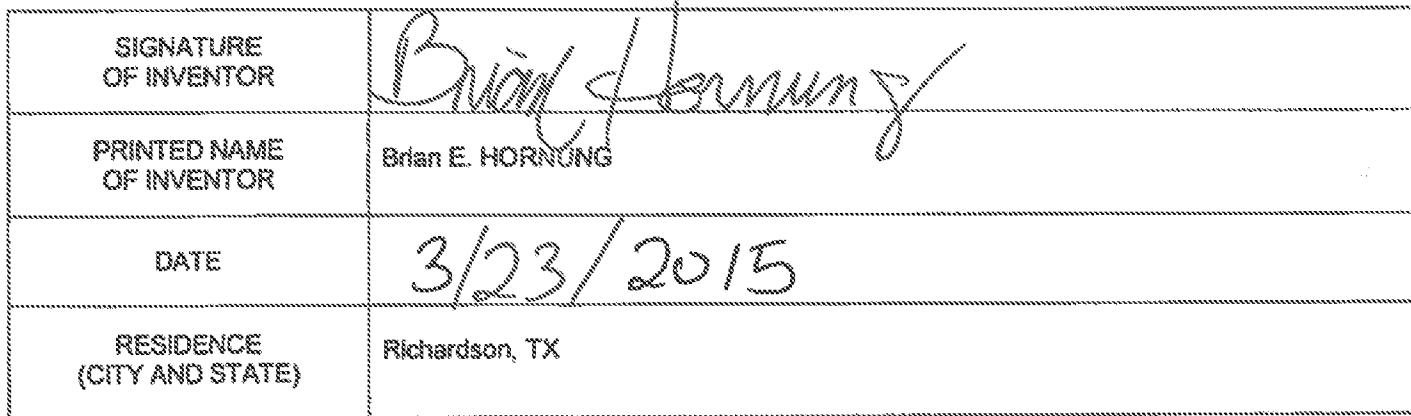 SIGNATURE
OF INVENTOR
Brian Hornung
PRINTED NAME
OF INVENTOR
Brian E. HORNUNG
DATE
3/23/2015
RESIDENCE
(CITY AND STATE)
Richardson, TX